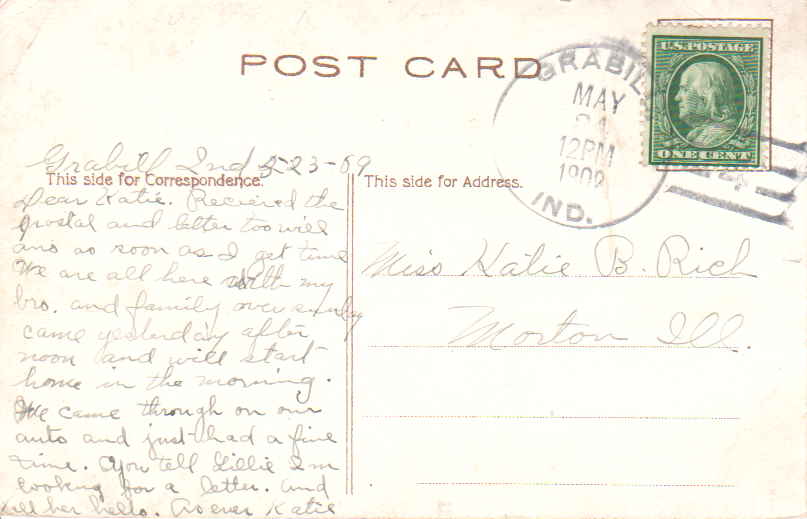 POST CARD
GRABILL
MAY
24
12PM
1909
IND.
U.S.POSTAGE
ONE CENT
Grabill Ind 5-23-09
This side for Correspondence.
Dear Katie. Recieved the
postal and letter too will
ans as soon as I get time
We are all here with my
bro. and family over sunday
came yesterday after
noon and will start
home in the morning.
We came through on our
auto and just had a fine
time. You tell Lillie Im
looking for a letter. and
tell her hello. As ever Katie
This side for Address.
Miss Katie B. Rich
Morton Ill.